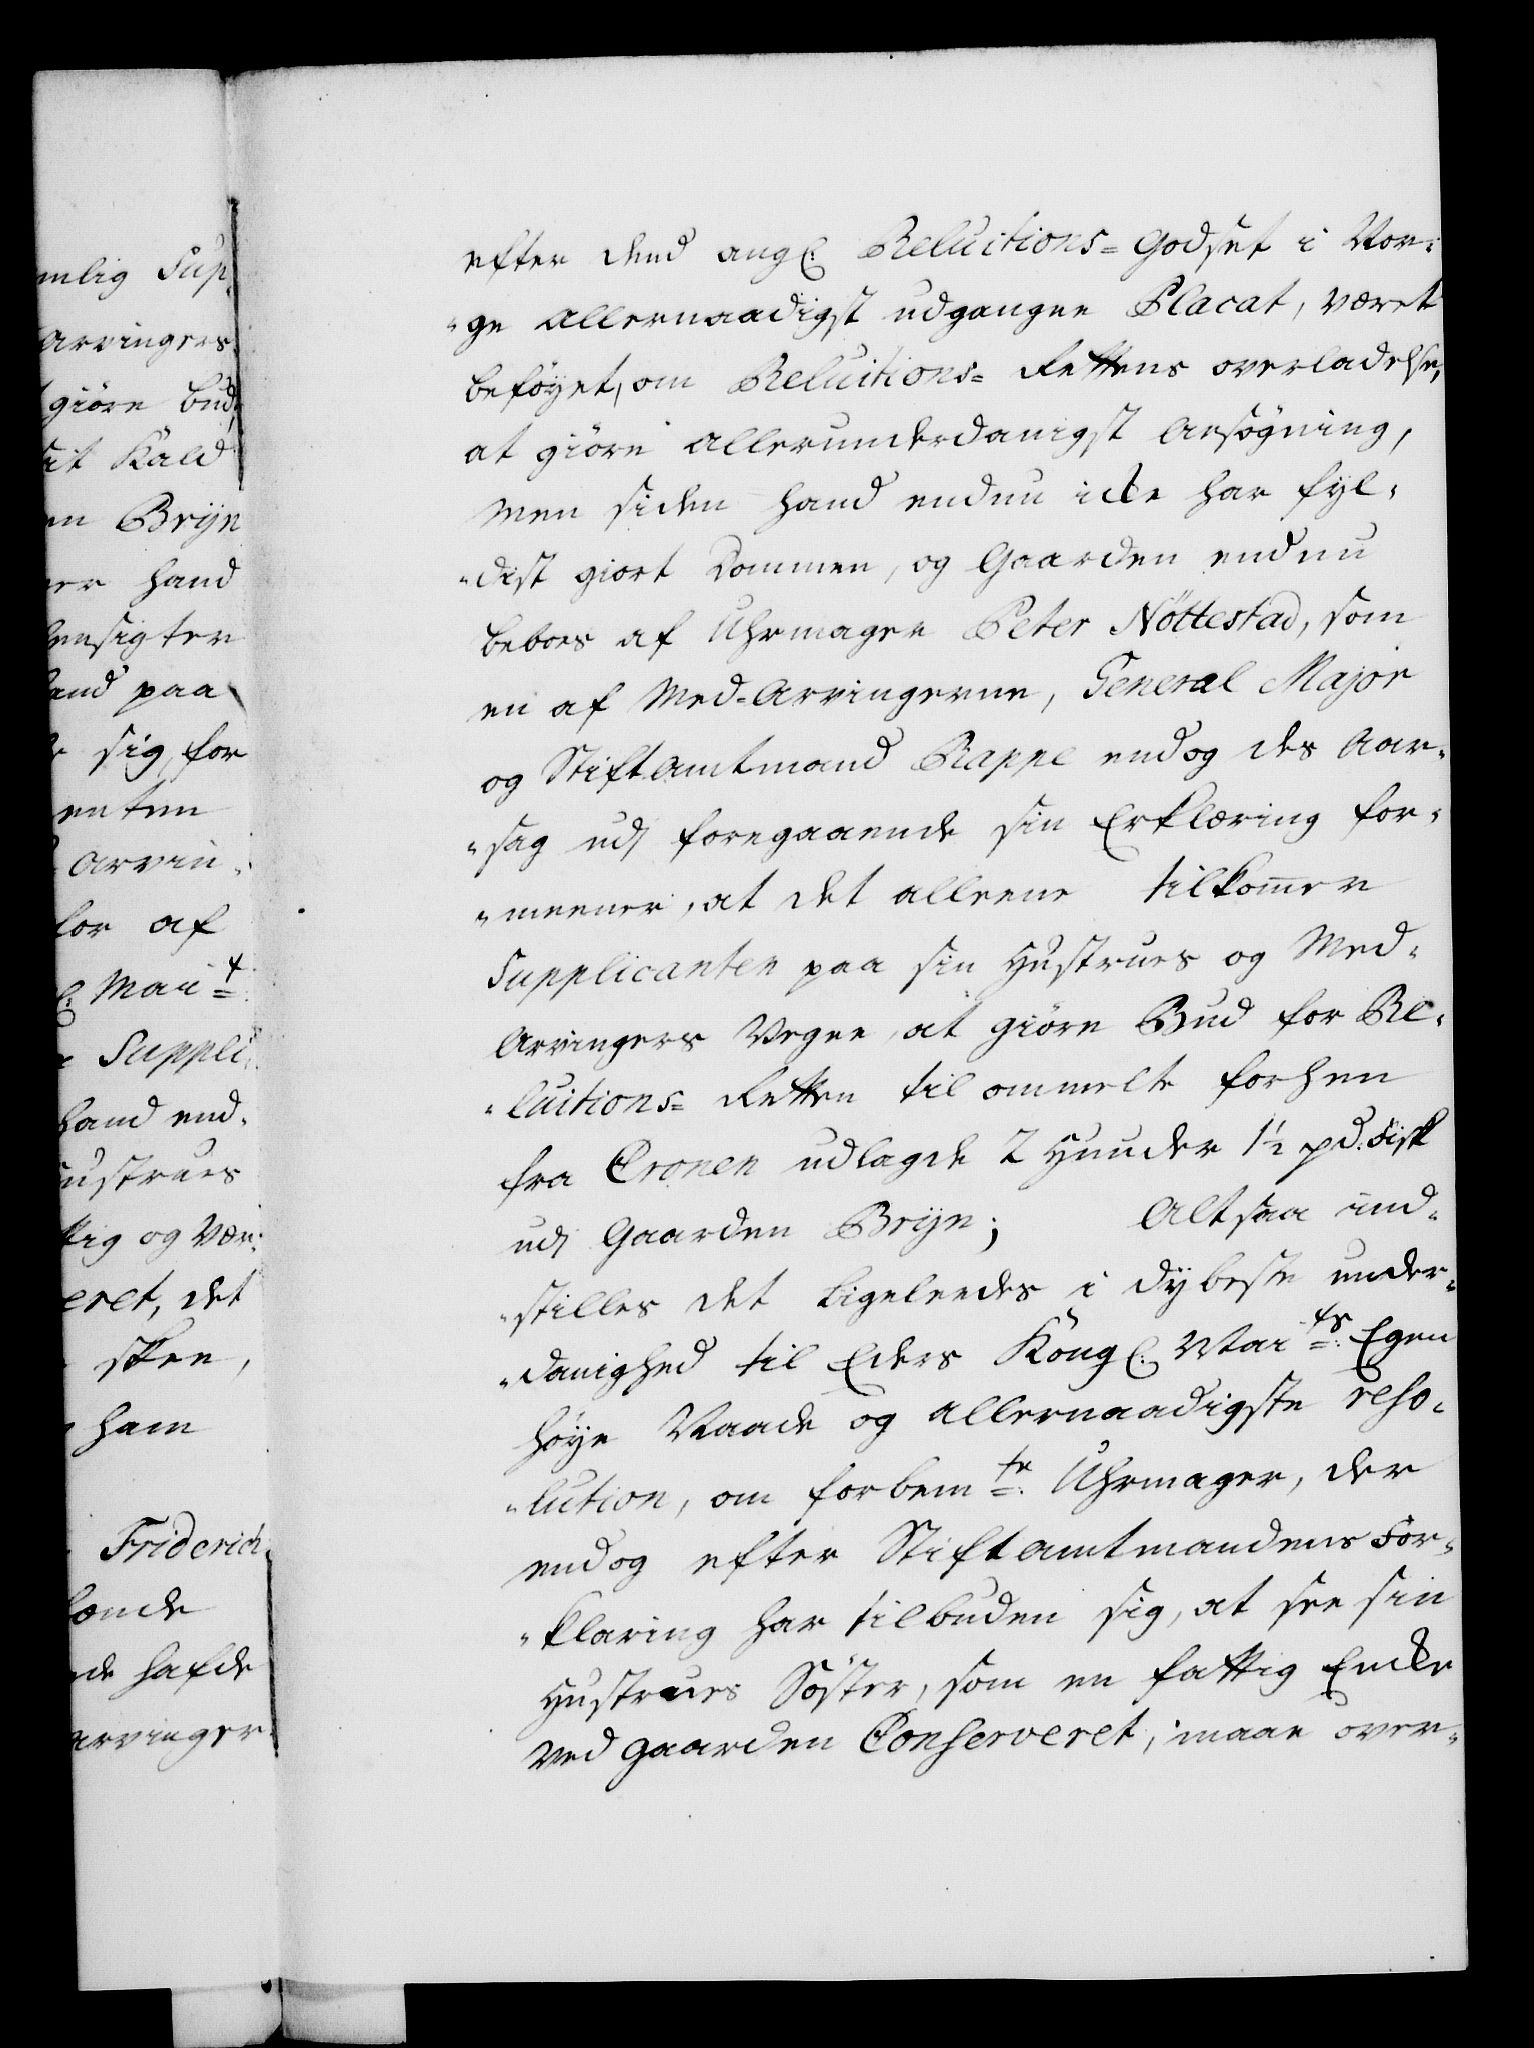 mlig Sup„
Arvingers
giöre bud,
sit Kald
en Bryn
er hand
hensigter
hand paa
sig, for
enten
Arvin„
for af
Mai.t
Suppli„
hand end„
ustrues
tig og Vær„
eret, det
skee,
ham
Friderich„
hafde
Arvinger
efter dend angl. Reluitions= Godset i Nor„
„ge allernaadigst udgangne Placat, været
beföyet, om Reluitions= Rettens overladelse,
at giöre allerunderdanigst Ansögning,
Men siden hand endnu icke har fyl„
„dist giort Dommen, og Gaarden endnu
beboes af Uhrmager Peter Nöttestad, som
en af Med=Arvingerne, General Major
og Stiftamtmand Rappe endog des Aar„
„sag udj foregaaende sin Erklæring for„
„meener, at det alleene tilkommer
Supplicanten paa sin Hustrues og Med„
Arvingers Vegne, at giöre Bud for Re„
„luitions= Retten til ommelte forhen
fra Cronen udlagde 2 Huuder 1½ pd. Fisk
udj Gaarden Bryn; Altsaa ind„
„stilles det Ligeleedes i dybeste under„
„danighed til Eders Kongl. Mai.ts Egen
höye Naade og allernaadigste reso„
„lution, om forbem.te Uhrmager, der
endog efter Stiftamtmandens For„
„klaring har tilbuden sig, at see sin
Hustrues Söster, som en fattig Encke
ved Gaarden Conserveret, maae over„